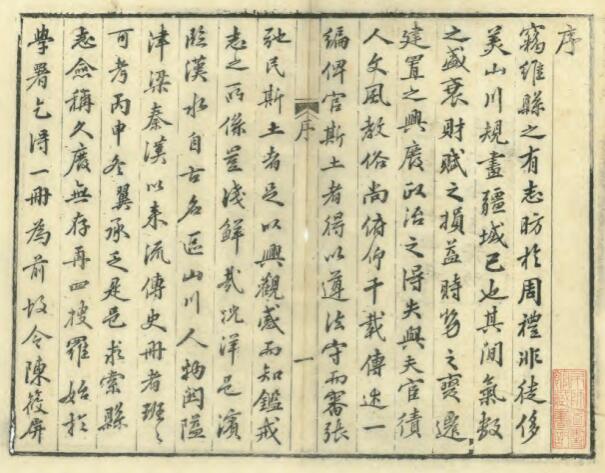 序
竊維縣之有志昉於周禮非徒侈
美山川規畫疆域已也其間氣數
之盛衰財賦之損益時势之變遷
建置之興廢政治之得失與夫官績
人文風教俗尚俯仰千載傳述一
編俾官斯土者得以遵法守而審張
序
一
弛民斯土者足以興觀感而知鑑戒
志之所係豈淺鮮哉况洋邑濱
臨漢水自古名區山川人物關隘
津梁秦漢以来流傳史冊者班々
可考丙申冬翼承乏是邑求索縣
志僉稱久廢無存再四搜羅始於
學署乞得一冊為前故令陳筱屏